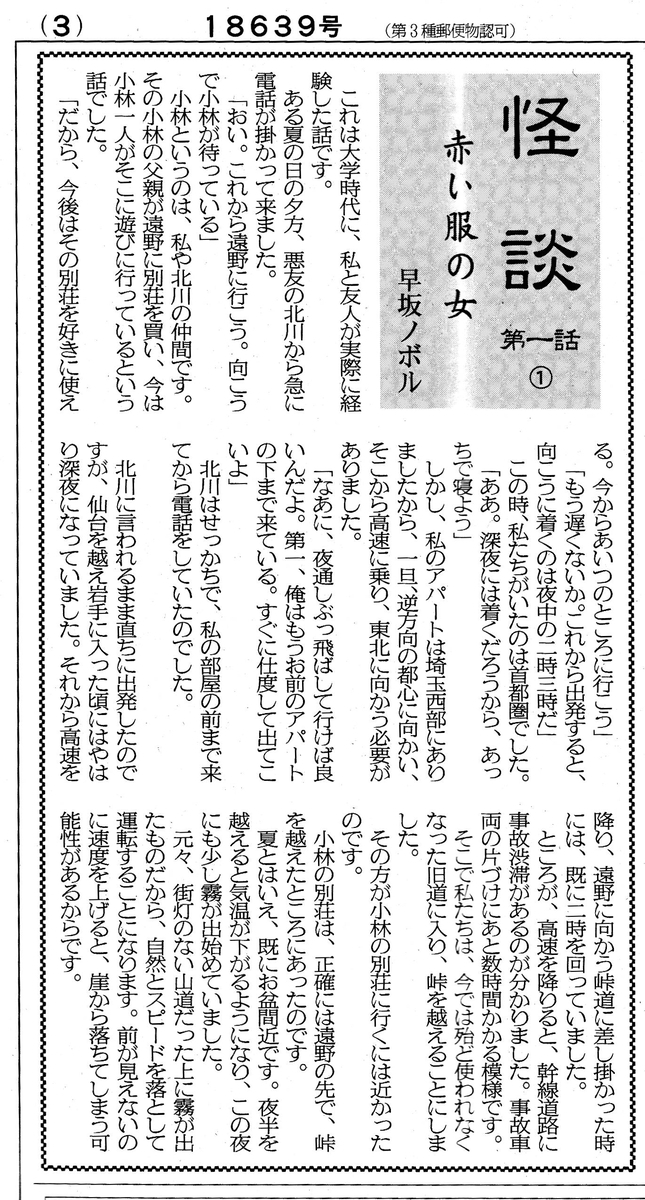 （3）
18639号
（第３種郵便物認可）
怪談
第一話
①
赤い服の女
早坂ノボル
これは大学時代に、私と友人が実際に経
験した話です。
ある夏の日の夕方、悪友の北川から急に
電話が掛かって来ました。
「おい。これから遠野に行こう。向こう
で小林が待っている」
小林というのは、私や北川の仲間です。
その小林の父親が遠野に別荘を買い、今は
小林一人がそこに遊びに行っているという
話でした。
「だから、今後はその別荘を好きに使え
る。今からあいつのところに行こう」
「もう遅くないか。これから出発すると、
向こうに着くのは夜中の二時三時だ」
この時、私たちがいたのは首都圏でした。
「ああ。深夜には着くだろうから、あっ
ちで寝よう」
しかし、私のアパートは埼玉西部にあり
ましたから、一旦、逆方向の都心に向かい、
そこから高速に乗り、東北に向かう必要が
ありました。
「なあに、夜通しぶっ飛ばして行けば良
いんだよ。第一、俺はもうお前のアパート
の下まで来ている。すぐに仕度して出てこ
いよ」
北川はせっかちで、私の部屋の前まで来
てから電話をしていたのでした。
北川に言われるまま直ちに出発したので
すが、仙台を越え岩手に入った頃にはやは
り深夜になっていました。それから高速を
降り、遠野に向かう峠道に差し掛かった時
には、既に二時を回っていました。
ところが、高速を降りると、幹線道路に
事故渋滞があるのが分かりました。事故車
両の片づけにあと数時間かかる模様です。
そこで私たちは、今では殆ど使われなく
なった旧道に入り、峠を越えることにしま
した。
その方が小林の別荘に行くには近かった
のです。
小林の別荘は、正確には遠野の先で、峠
を越えたところにあったのです。
夏とはいえ、既にお盆間近です。夜半を
越えると気温が下がるようになり、この夜
にも少し霧が出始めていました。
元々、街灯のない山道だった上に霧が出
たものだから、自然とスピードを落として
運転することになります。前が見えないの
に速度を上げると、崖から落ちてしまう可
能性があるからです。